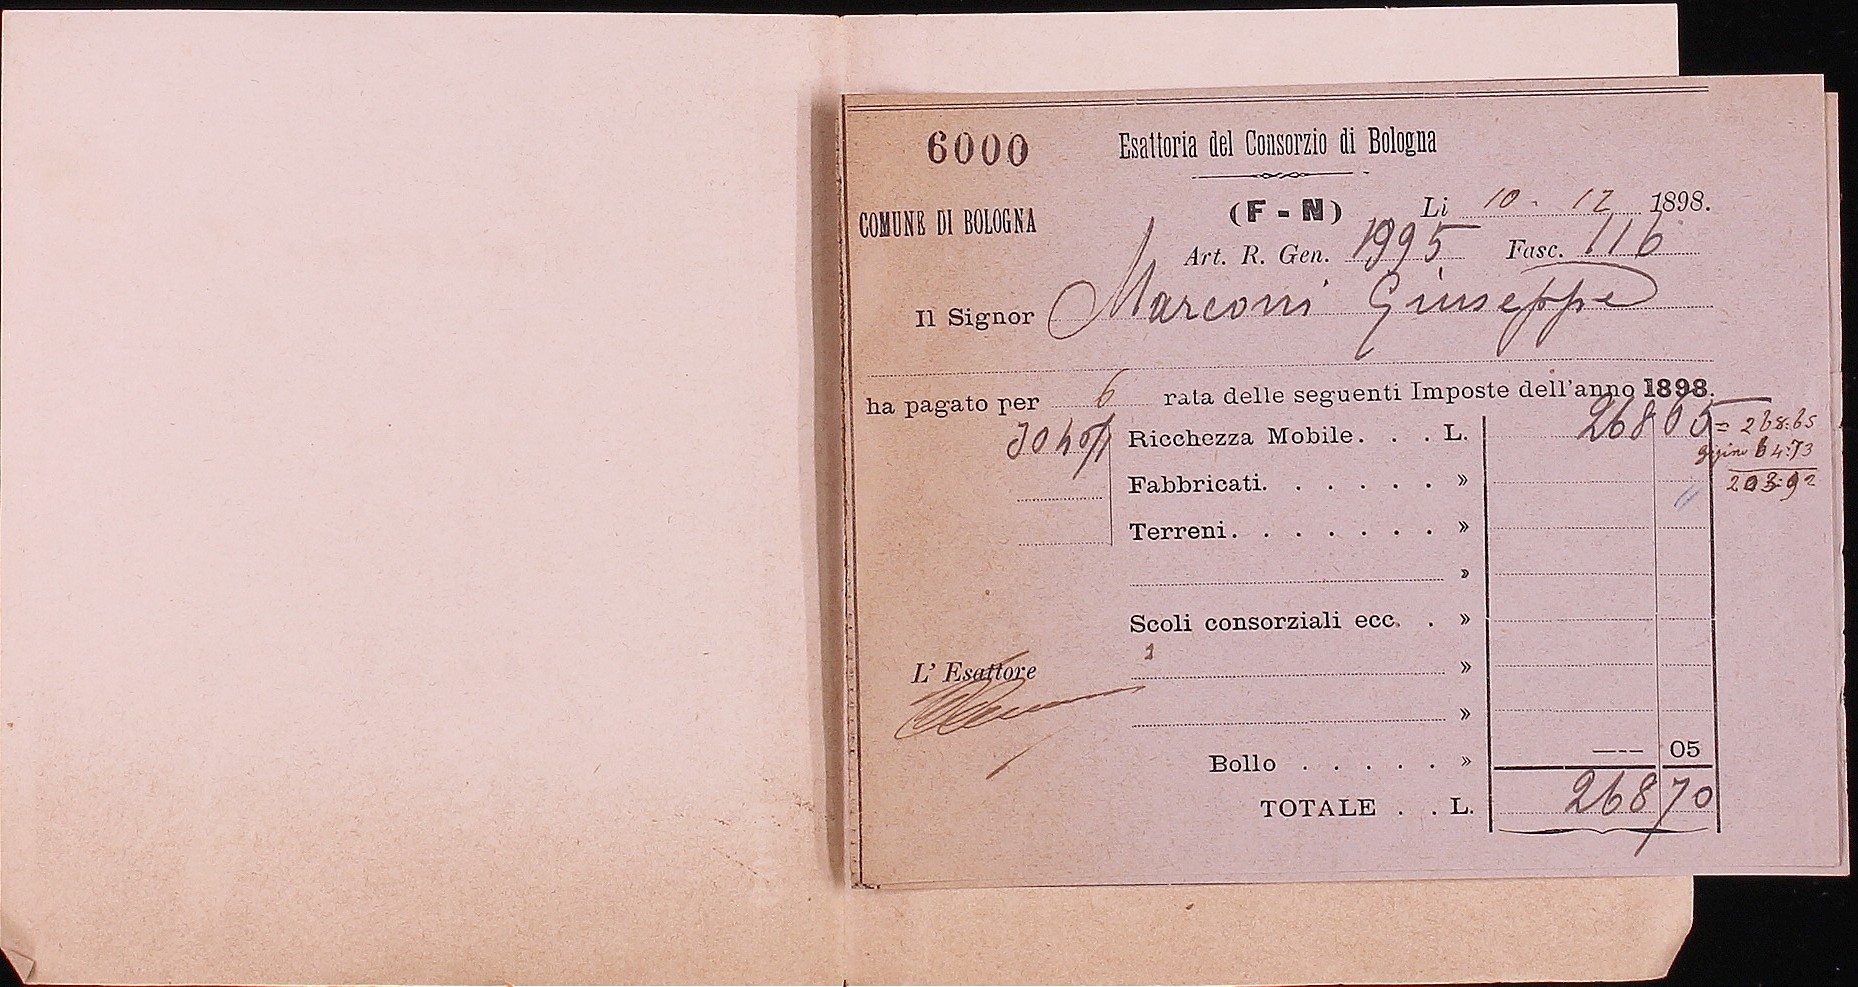 6000
Esattoria del Consorzio di Bologna
COMUNE DI BOLOGNA
(F - N)
Li 10 - 12 1898.
Art. R. Gen. 1995 Fasc. 116
Il Signor Marconi Giuseppe
ha pagato per 6 rata delle seguenti Imposte dell'anno 1898.
Ricchezza Mobile. . . L. 268 65 = 268:65
64:73
203:92
Fabbricati. . . . . . »
Terreni. . . . . . . »
»
Scoli consorziali ecc. . »
1
»
L' Esattore
»
Bollo . . . . . » --- 05
TOTALE . . L. 268 70